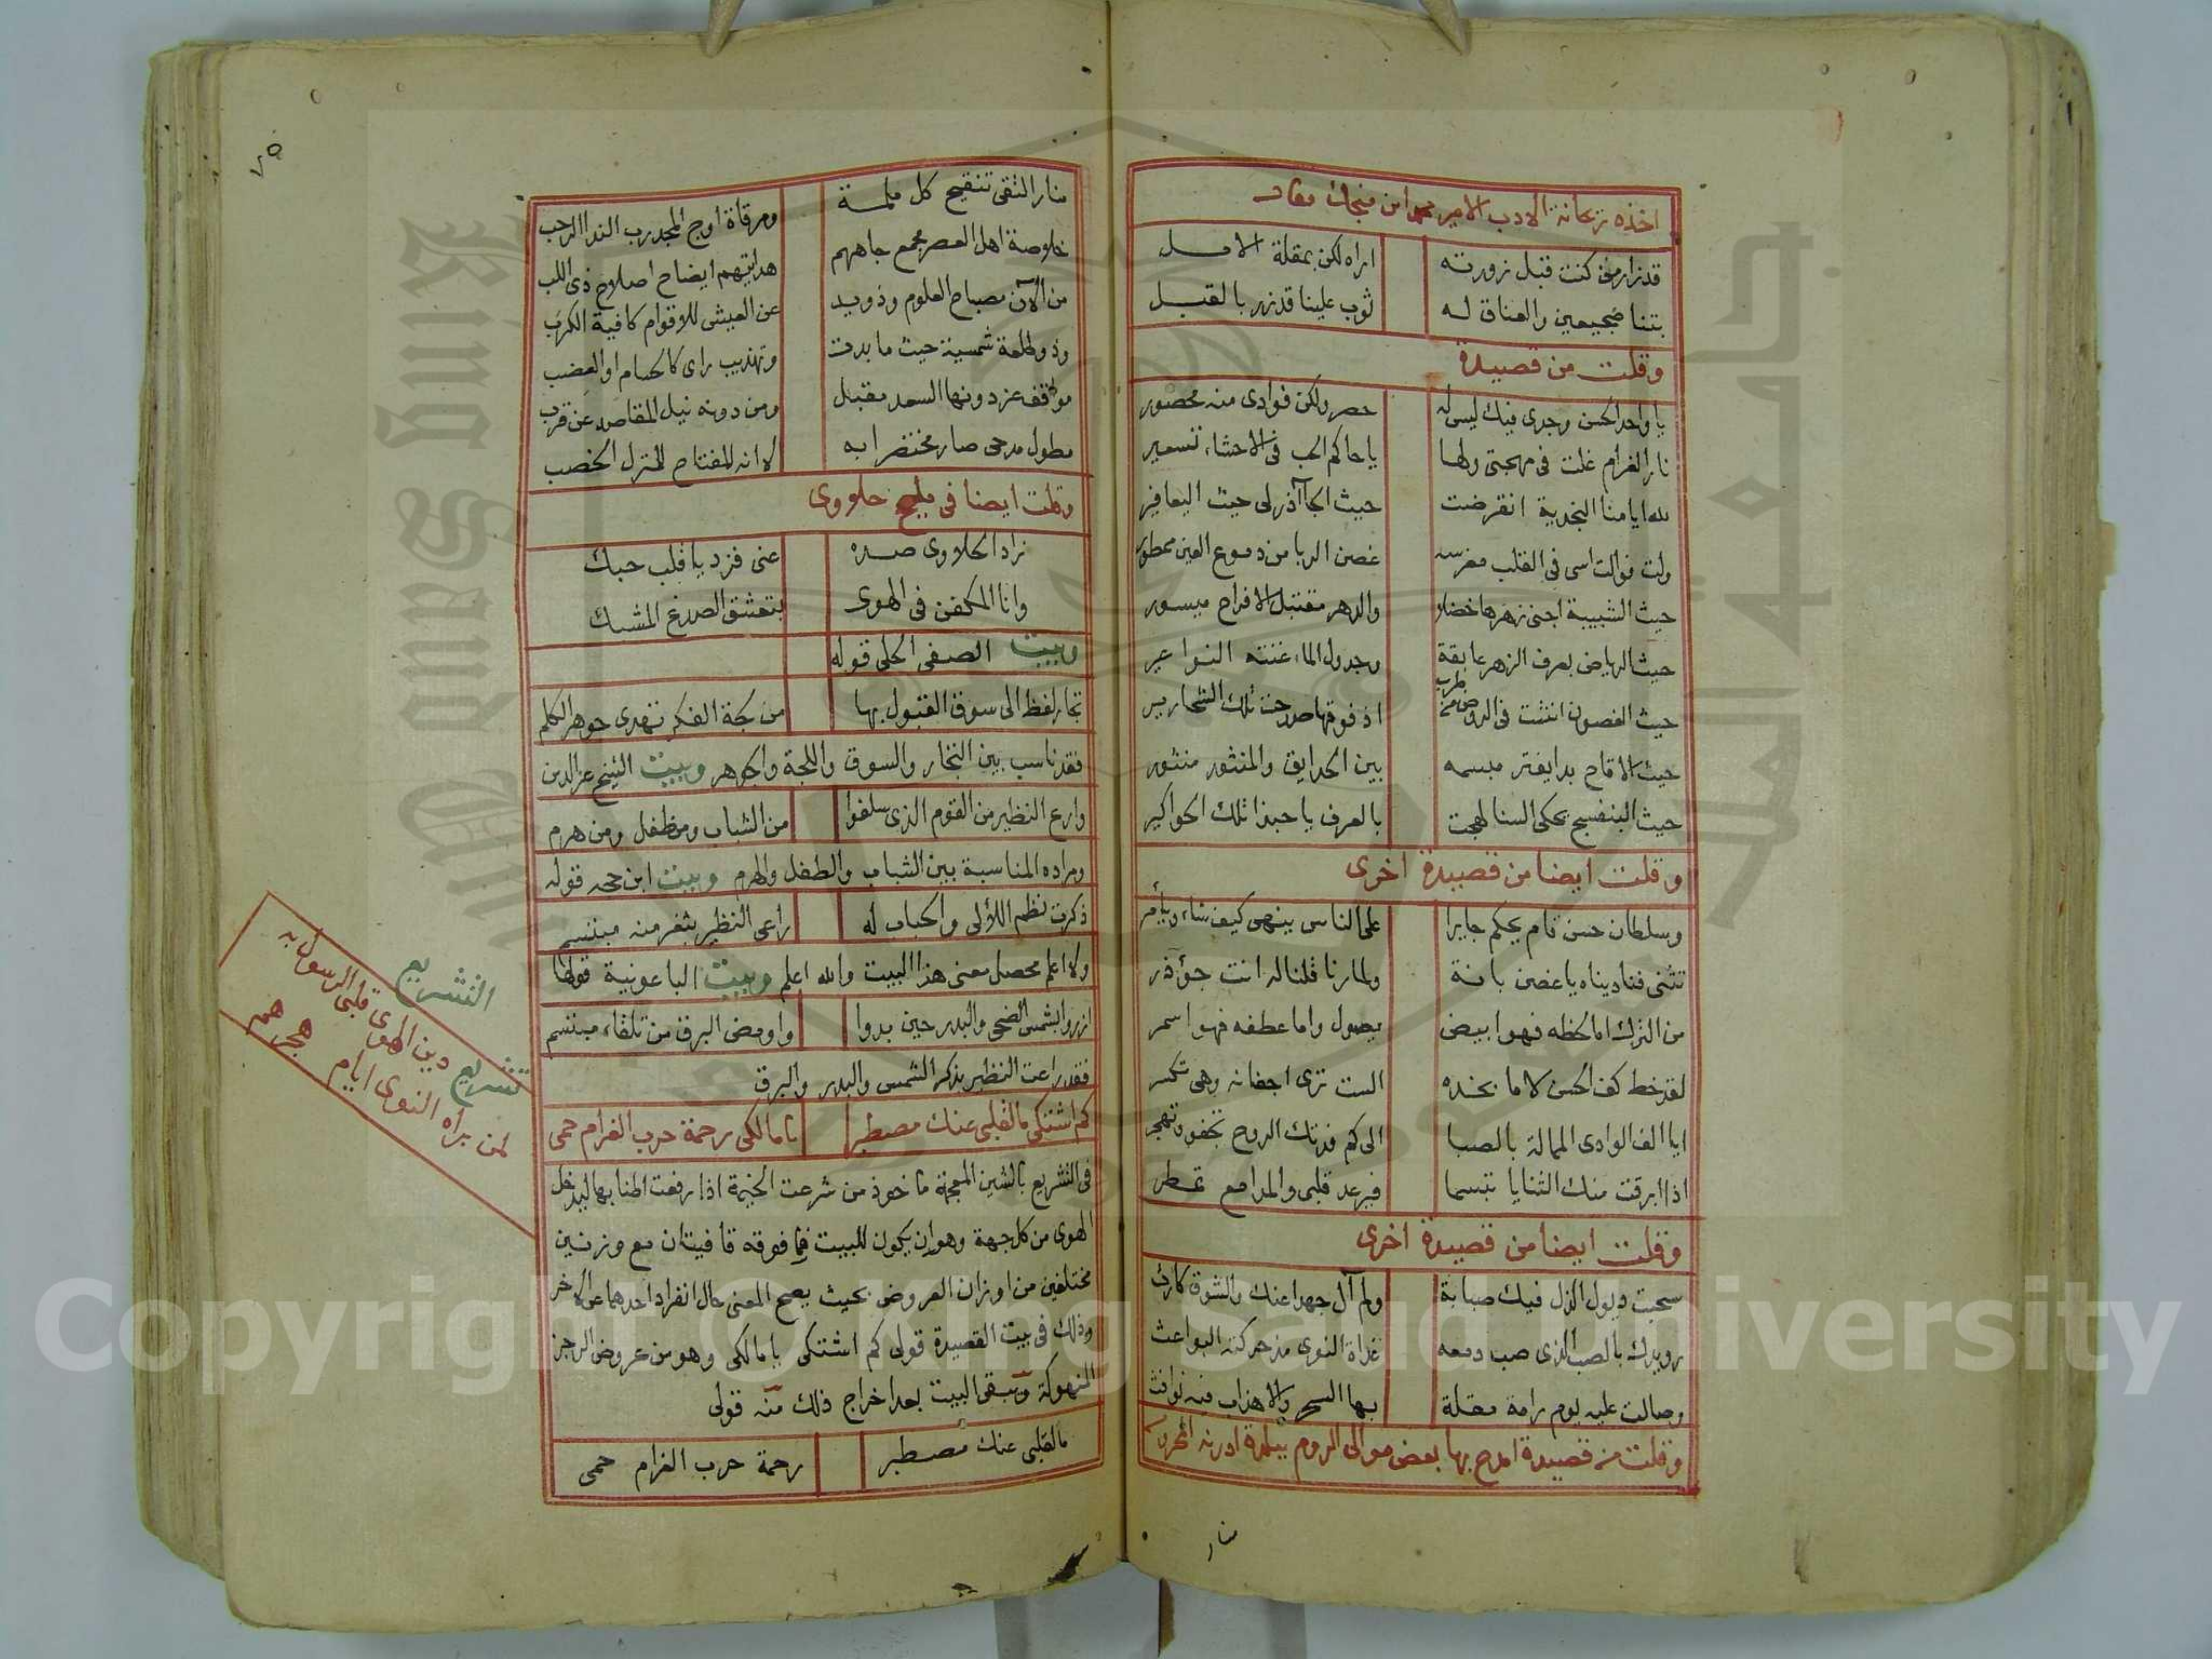 اخذه ريحانة الادب الامير محمد ابن منجك فقال
قد زار من كنت قبل زورته اراه لكن بمقلة الامل
بتنا ضجيعين والعناق له ثوب علينا قد زر بالقبل
وقلت من قصيدة
يا واحد الحسن وجدي فيك ليس له حصر ولكن فوادي منه محصور
نار الغرام غلت في مهجتي ولها يا حاكم الحب في الاحشاء تسعير
لله ايامنا النجدية انقرضت حيث الجآآذر لي حيث اليعافير
ولت فوالت اسى في القلب مغرسه غصن الربا من دموع العين ممطور
حيث الشبيبة اجني زهرها خضلا والدهر مقتبل الافراح ميسور
حيث الرياض بعرف الزهر عابقة وجدول الماء غنته النواعير
حيث الغصون انثنت في الروض من طرب اذ فوقها صدحت تلك الشحارير
حيث الاقاح بدا يفتر مبسمه بين الحدايق والمنثور منثور
حيث البنفسج يحكي السنا لهجت بالعرف يا حبذا تلك الحواكير
وقلت ايضا من قصيدة اخرى
وسلطان حسن قام يحكم جايرا على الناس ينهى كيف شاء ويأمر
تثنى فناديناه يا غصن بانة ولما رنا قلنا له انت جؤذر
من الترك اما لحظه فهو ابيض يصول واما عطفه فهو اسمر
لقد خط كف الحسن لاما بخده الست ترى اجفانه وهي تكسر
ايا الف الوادي الممالة بالصبا الى كم فدتك الروح تجفو وتهجر
اذا ابرقت منك الثنايا تبسما فيرعد قلبي والمدامع تمطر
وقلت ايضا من قصيدة اخرى
سحبت ذيول الذل فيك صبابة ولم آل جهدا عنك والشوق كارث
رويدك بالصب الذي صب دمعه غداة النوى مذ حركته البواعث
وصالت عليه يوم رامة مقلة بها السحر والاهداب فيه نوافث
وقلت من قصيدة امدح بها بعض موالي الروم ببلدة ادرنه المحروسة
منار
٧٥
منار التقى تنقيح كل ملمة ومرقاة اوج المجد رب الندا الرحب
خلوصة اهل العصر مجمع جاههم هدايتهم ايضاح اصلاح ذي اللب
من الآن مصباح العلوم وذويد عن العيشى للاقوام كافية الكرب
وذو طلعة شمسية حيث ما بدت وتهذيب راى كالحسام او العضب
مواقف عز دونها السعد مقبل ومن دونه نيل المقاصد عن قرب
مطول مدحي صار مختصرا به لانه للمفتاح للمنزل الخصب
وقلت ايضا في مليح حلاوي
زاد الحلاوى صده عني فزد يا قلب حبك
وانا المكفن في الهوى بتعشق الصدغ المشبك
وبيت الصفي الحلي قوله
تجار لفظ الى سوق القبول بها من لجة الفكر تهدي جوهر الكلم
فقد ناسب بين التجار والسوق واللجة والجوهر وبيت الشيخ عز الدين
وارع النظير من القوم الذي سلفوا من الشباب ومن طفل ومن هرم
ومراده المناسبة بين الشباب والطفل والهرم وبيت ابن حجه قوله
ذكرت نظم اللألى والحباب له راعى النظير بثغر منه مبتسم
ولا اعلم محصل معنى هذا البيت والله اعلم وبيت الباعونية قولها
ازروا بشمس الضحى والبدر حين بدوا واومض البرق من تلقاء مبتسم
فقد راعت النظير بذكر الشمس والبدر والبرق
كم اشتكي ما لقلبي عنك مصطبر يا مالكي رحمة حرب الغرام حمى
في التشريع بالشين المعجمة ماخوذ من شرعت الخيمة اذا رفعت اطنابها ليدخل
الهوى من كل جهة وهو ان يكون للبيت فما فوقه قافيتان مع وزنين
مختلفين من اوزان العروض بحيث يصح المعنى حال انفراد احدهما عن الاخر
وذلك في بيت القصيدة قولي كم اشتكي يا مالكي وهو من عروض الرجز
المنهوكة ويبقى البيت بعد اخراج ذلك منه قولي
ما لقلبي عنك مصطبر رحمة حرب الغرام حمى
التشريع
تشريع دين الهوى قلبي الرسول به
لمن براه النوى ايام هجرهم
Copyright © King Saud University
King Saud University
جامعة الملك سعود